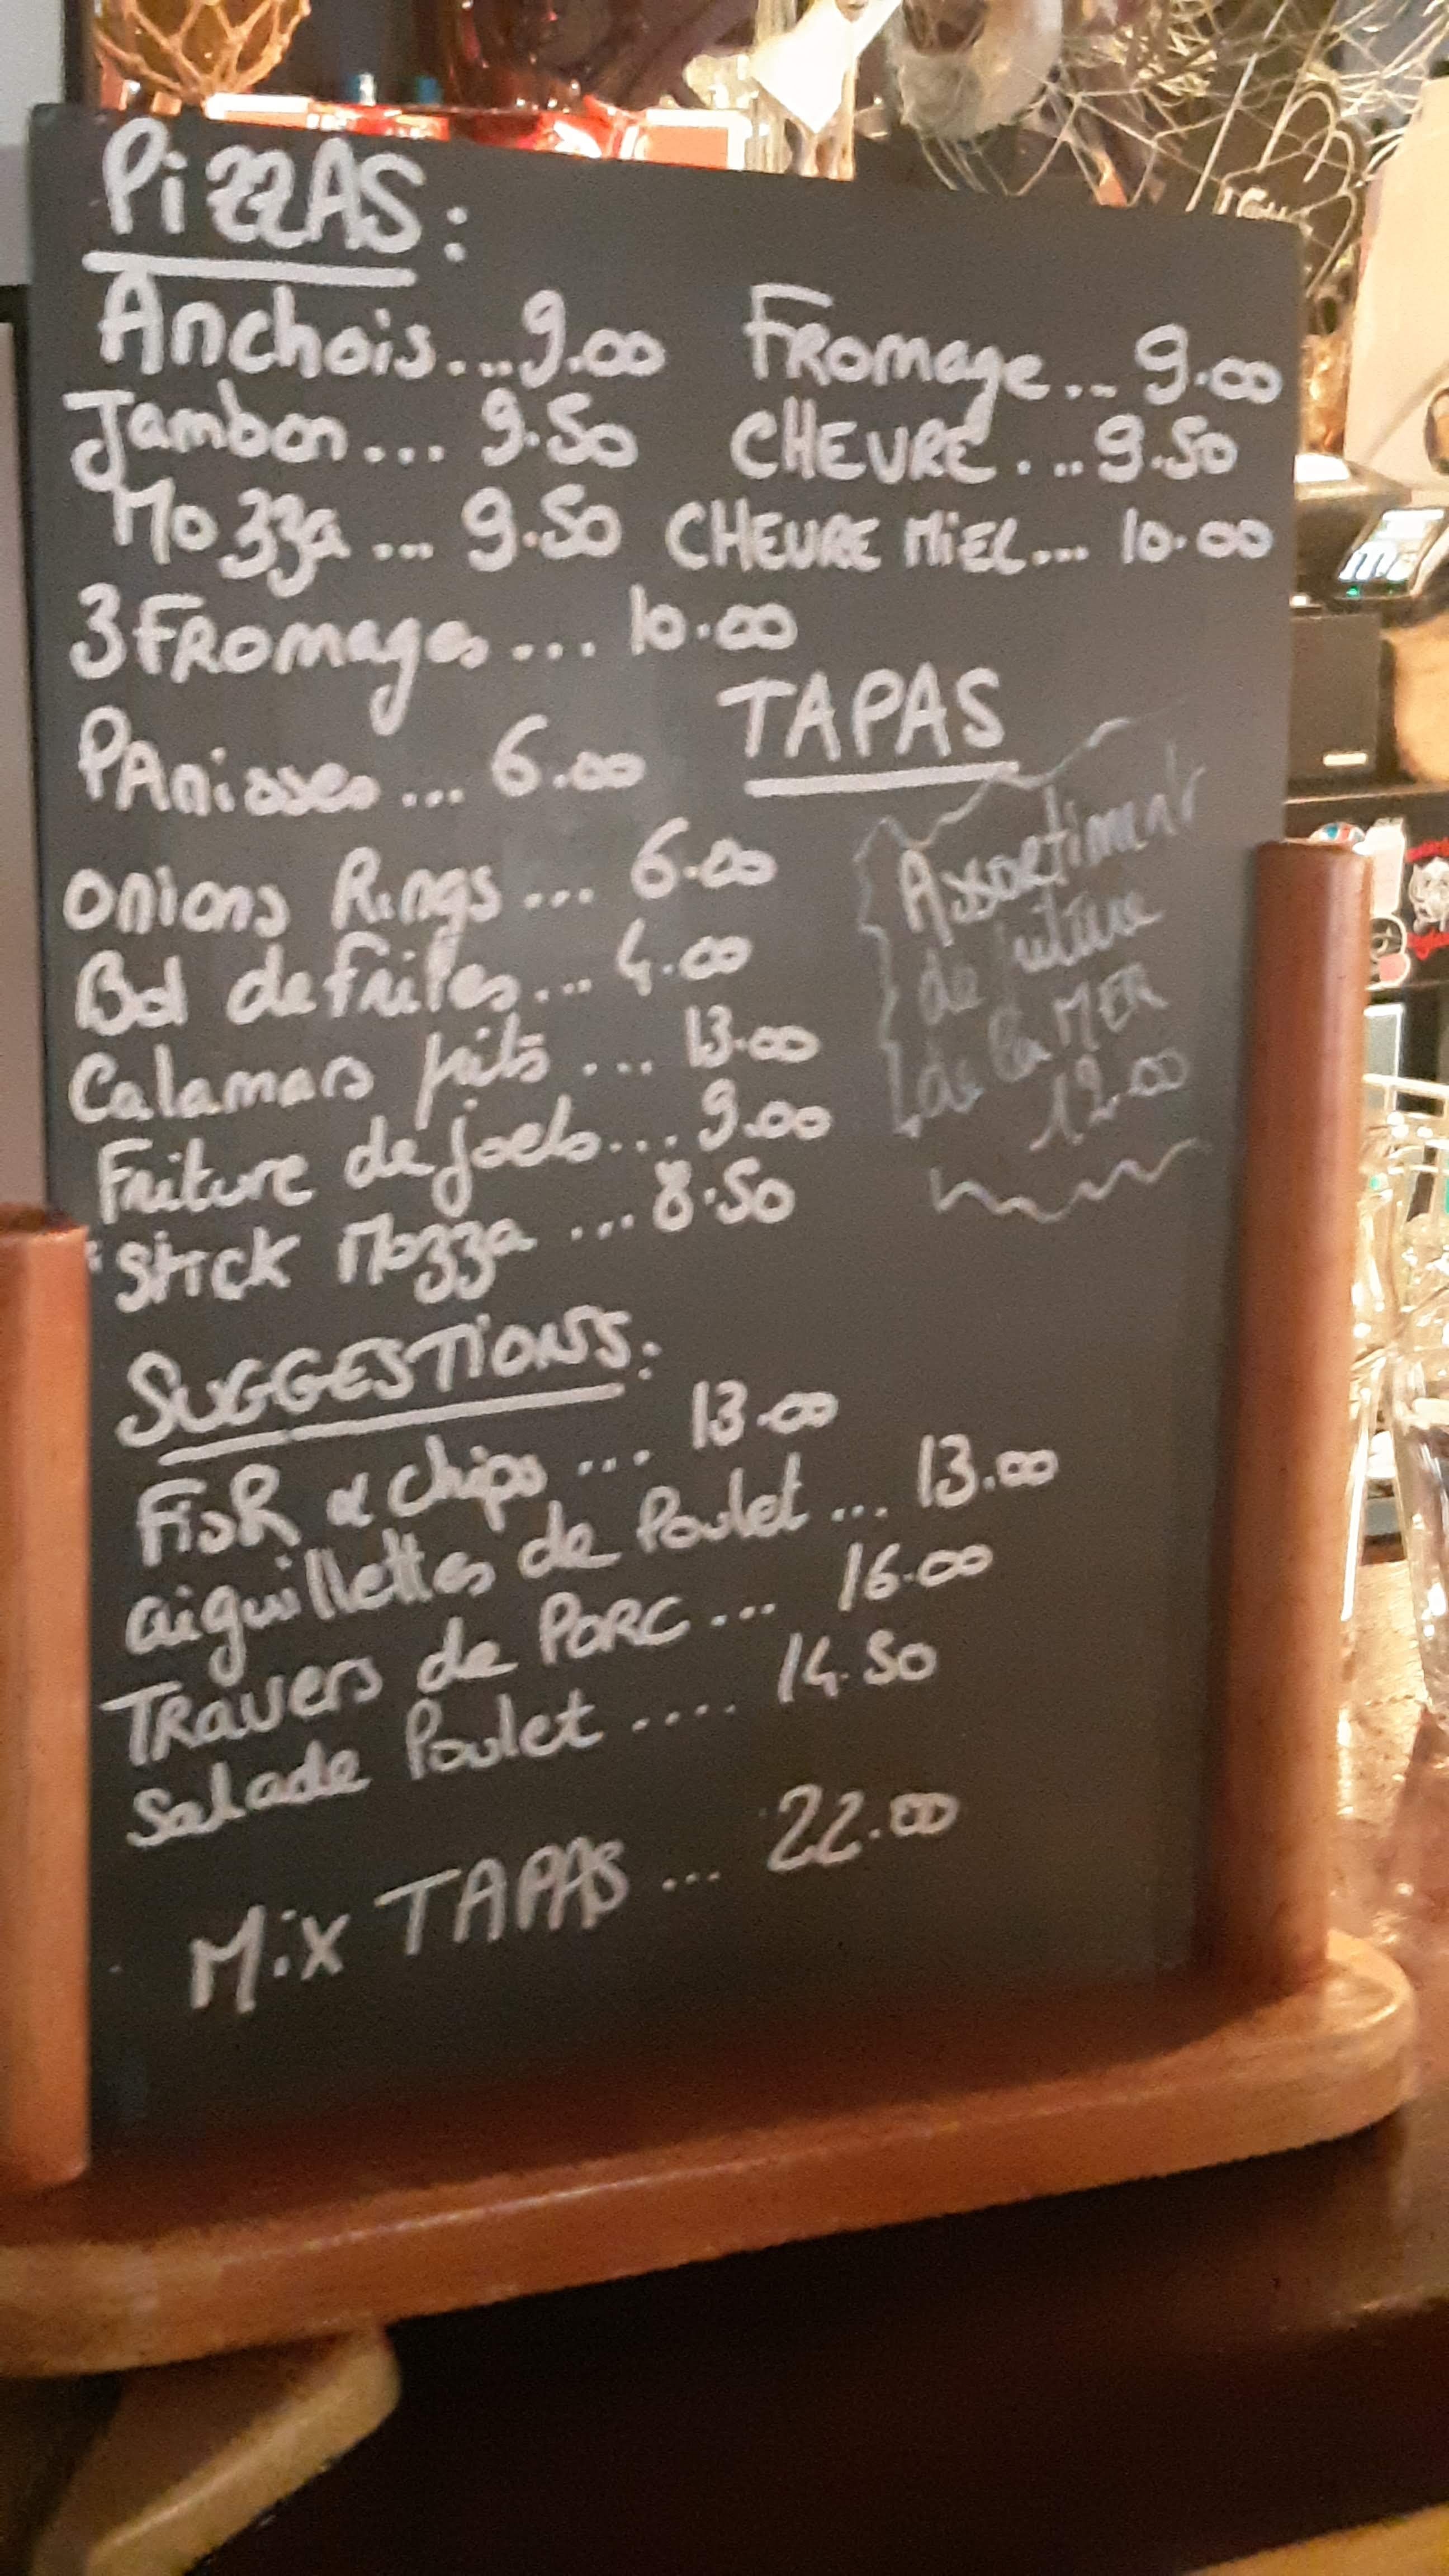 PiZZAS:
Anchois...9.00 Fromage...9.00
Jambon...9.50 CHEVRE...9.50
Mozza...9.50 CHEVRE MiEL...10.00
3 FRomages...10.00
TAPAS
PAnisses...6.00
Onions Rings...6.00
Bol de frites...4.00
Calamars frits...13.00
Friture de joels...9.00
Stick Mozza...8.50
Assortiment
de friture
de la MER
12.00
SUGGESTiONS:
Fish & chips...13.00
aiguillettes de Poulet...13.00
TRavers de PORC...16.00
Salade Poulet....14.50
Mix TAPAS...22.00